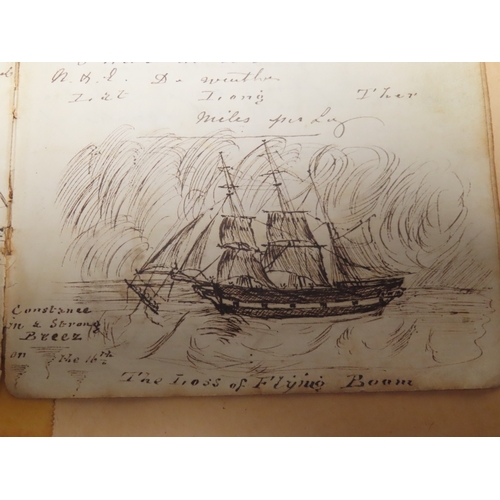 N. & E. Do weather
Lat Long Ther
Miles pr Log
Constance
in a Strong
Breez
on the 16th
The Loss of Flying Boom